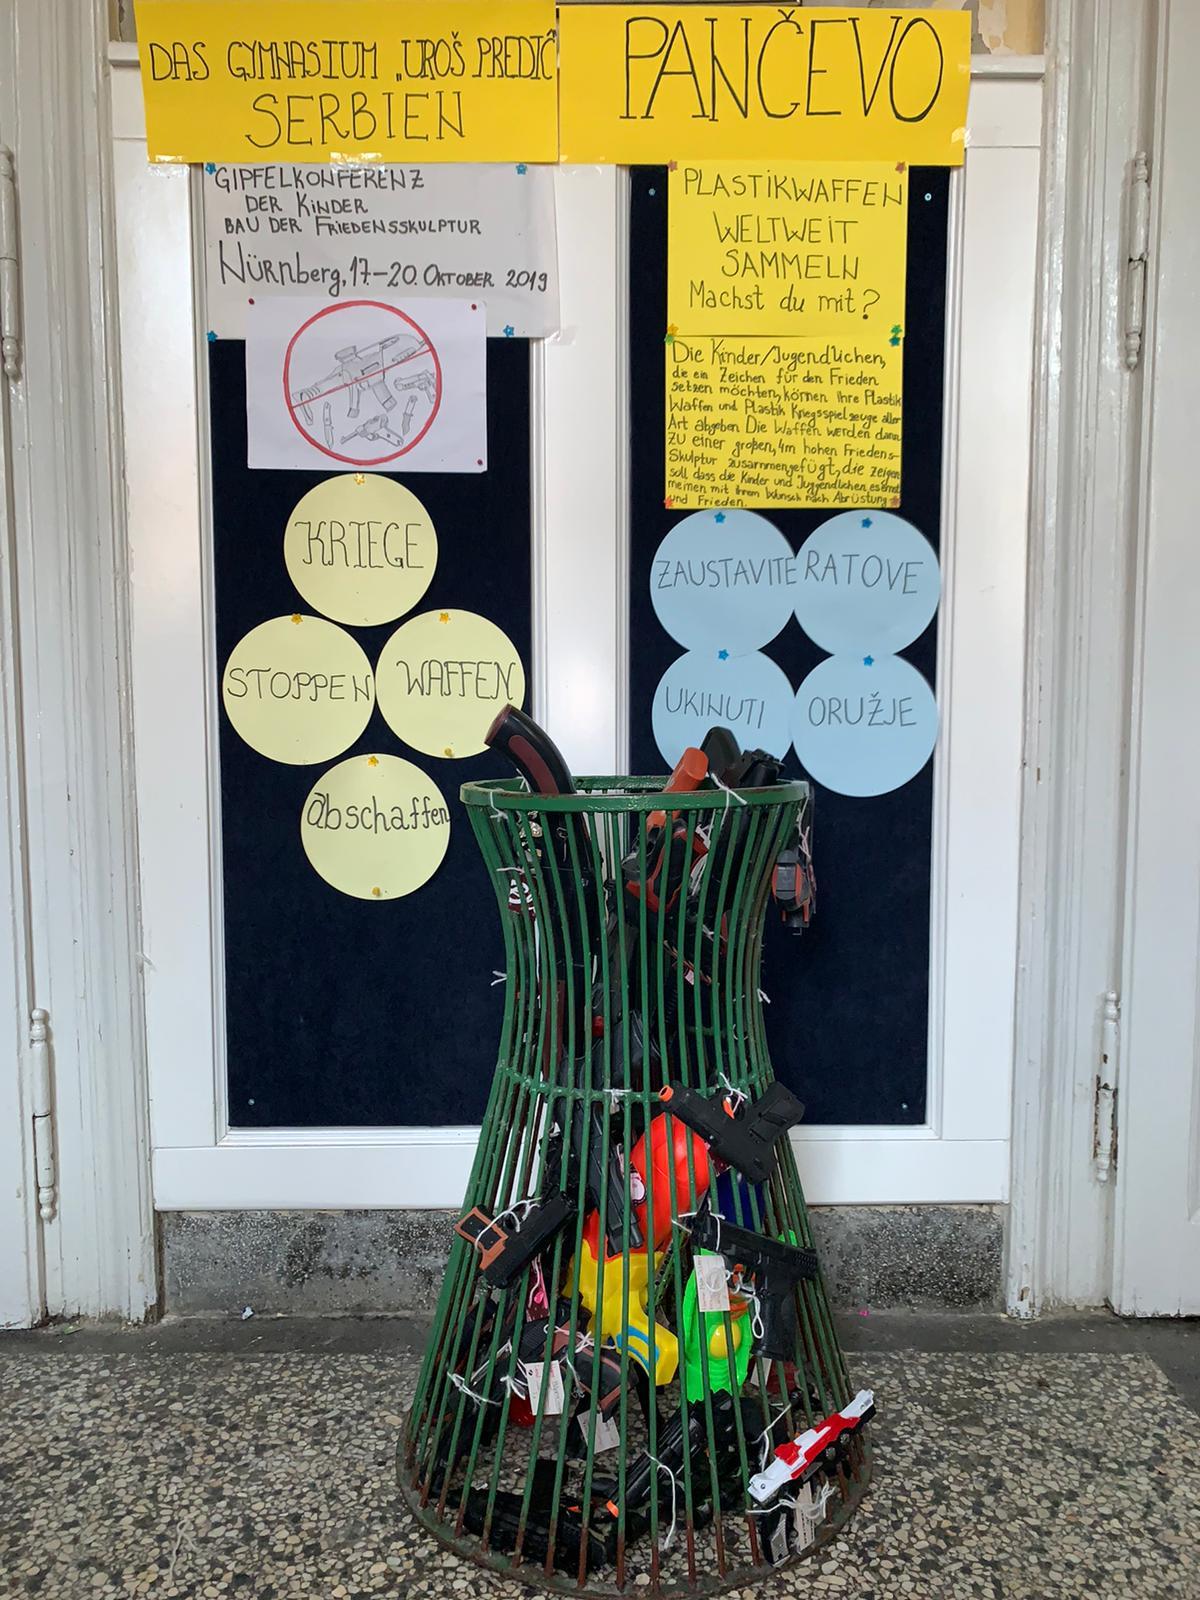 DAS GYMNASIUM „UROŠ PREDIĆ
SERBIEN
PANČEVO
GIPFELKONFERENZ
DER KINDER
BAU DER FRIEDENSSKULPTUR
Nürnberg, 17.-20. OKTOBER 2019
KRIEGE
STOPPEN
WAFFEN
abschaffen
PLASTIKWAFFEN
WELTWEIT
SAMMELN
Machst du mit?
Die Kinder/Jugendlichen,
die ein Zeichen für den Frieden
setzen möchten, können ihre Plastik
Waffen und Plastik Kriegsspielzeuge aller
Art abgeben Die Waffen werden dann
zu einer großen, 4m hohen Friedens-
Skulptur zusammengefügt, die zeigen
soll dass die Kinder und Jugendlichen es ernst
meinen mit ihrem Wunsch nach Abrüstung
und Frieden.
ZAUSTAVITE
RATOVE
UKINUTI
ORUŽJE